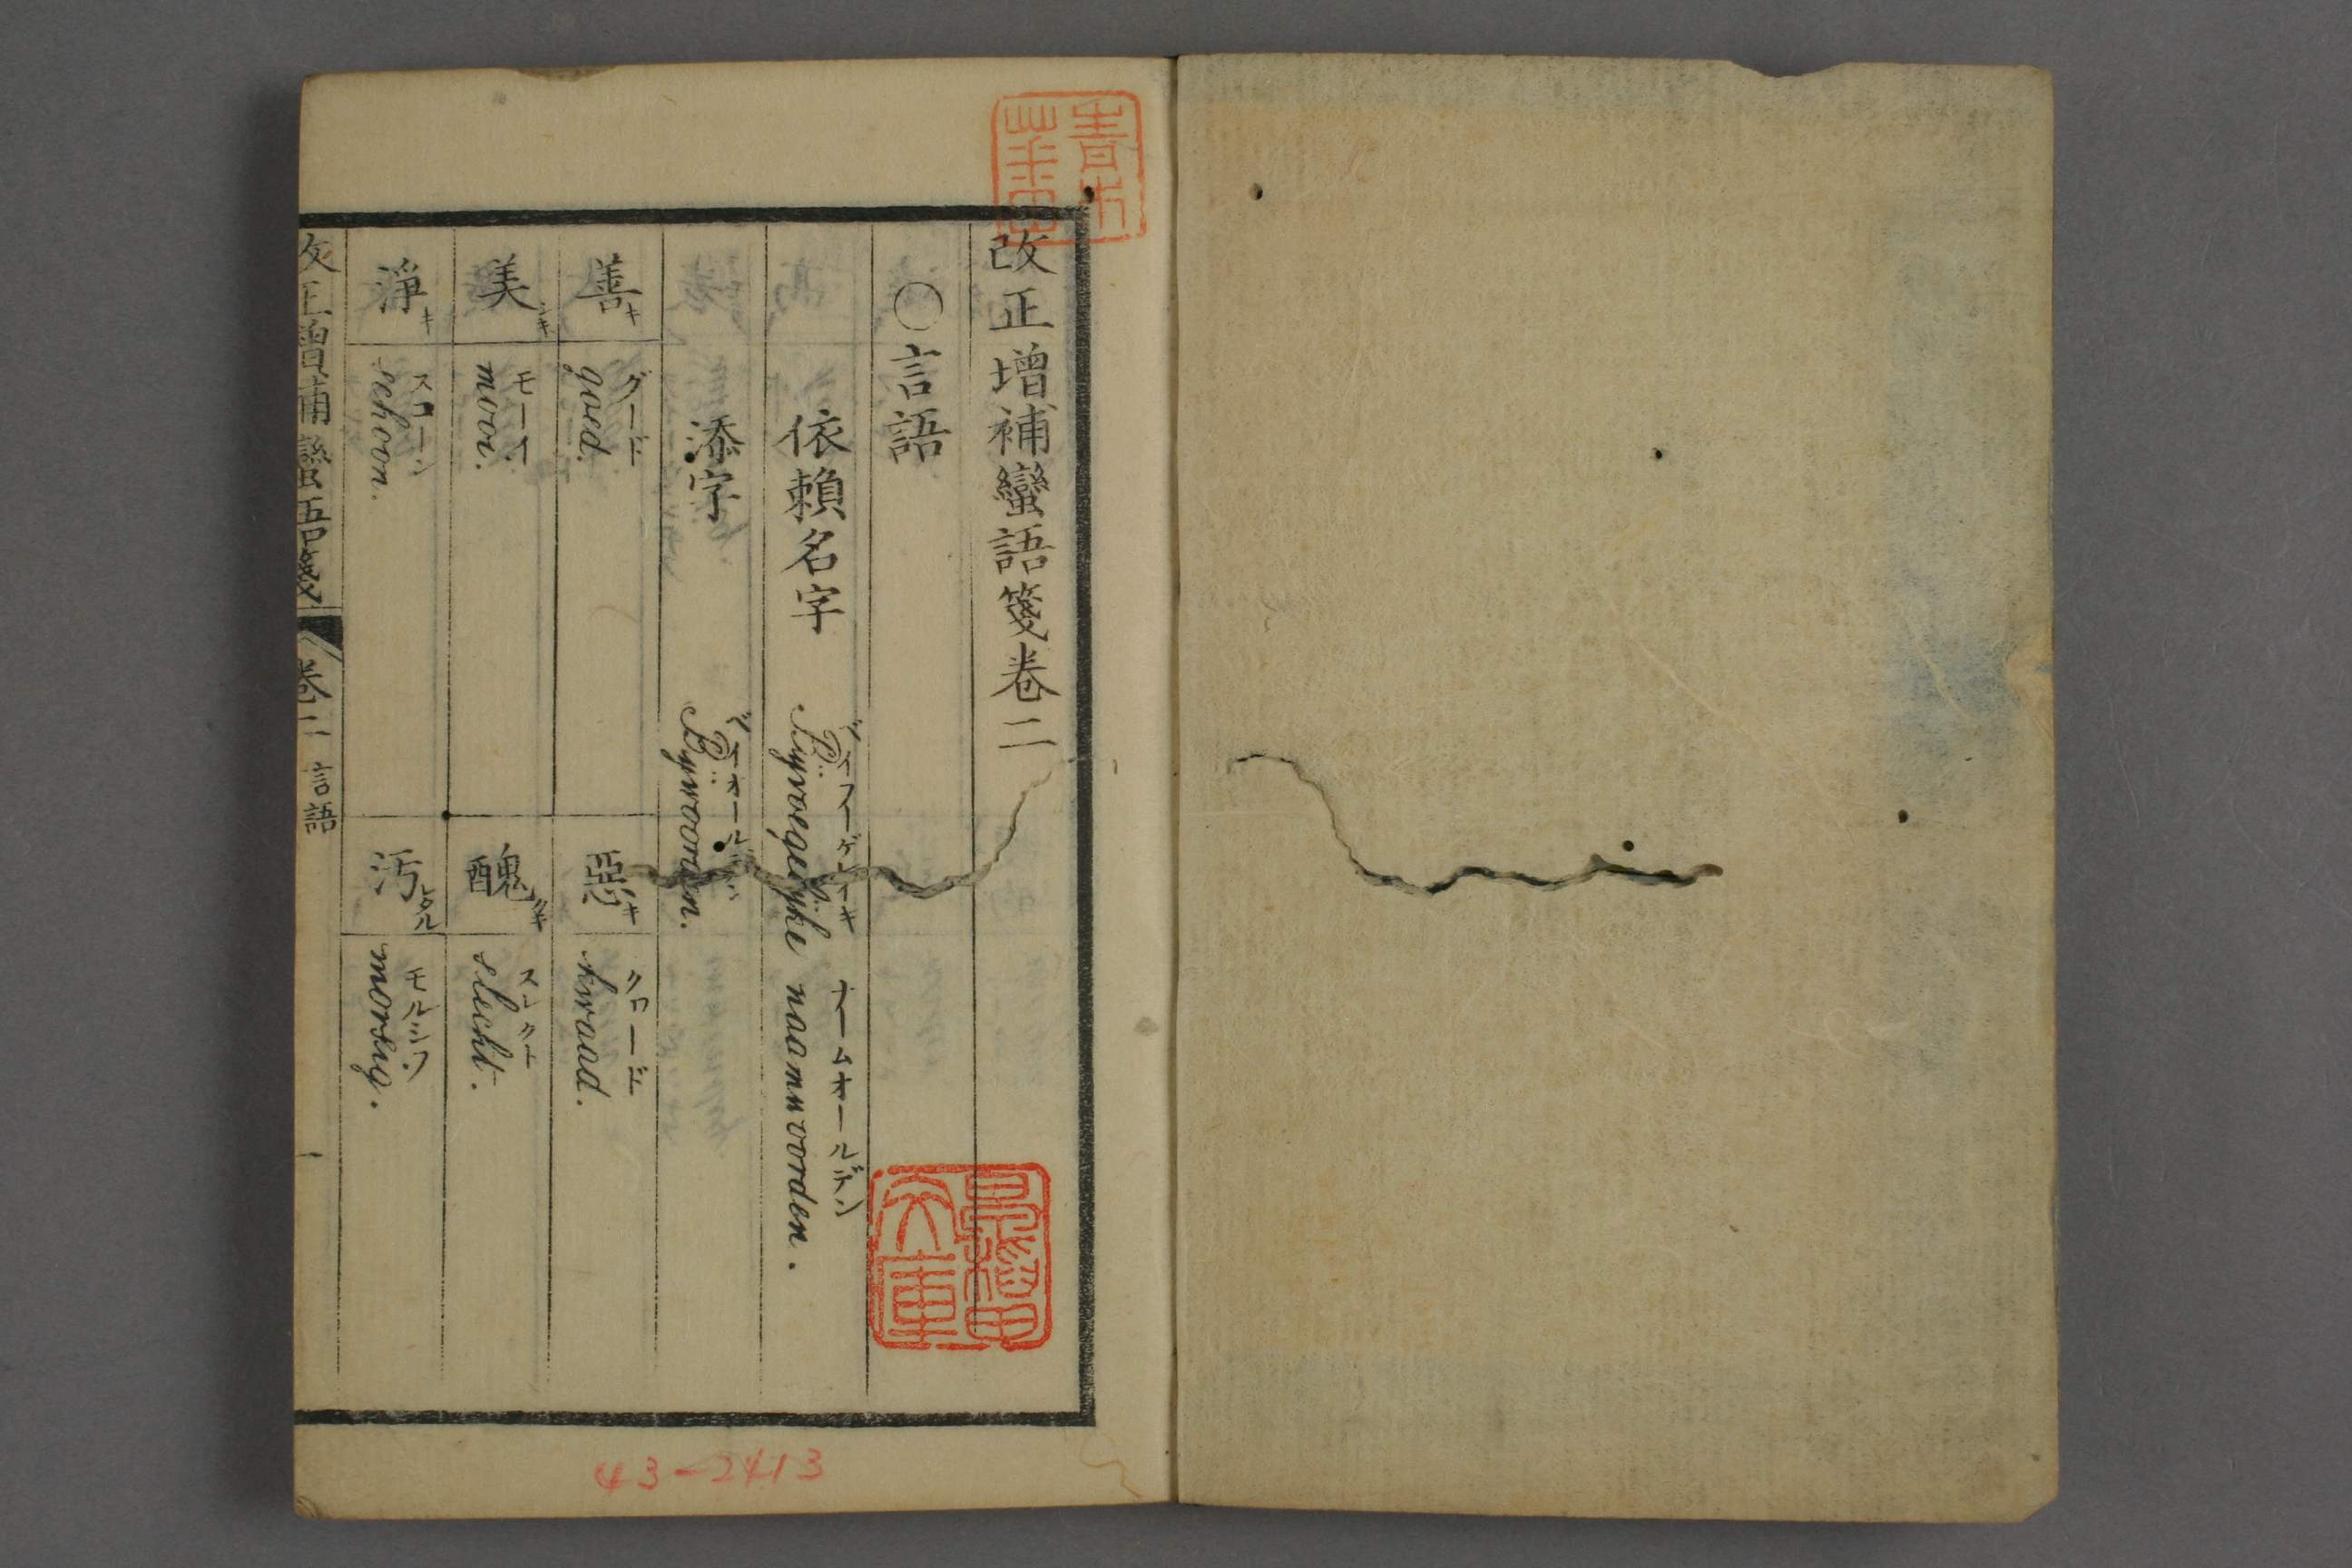 改正增補蠻語箋卷二
○言語
依賴名字
ベイフーゲレイキ ナームオールデン
Byvoegelyke naamwoorden.
添字
ベイオールデン
Bywoorden.
善キ
グード
goed.
惡キ
クワード
kwaad.
美シキ
モーイ
mooi.
醜クキ
スレクト
slecht.
淨キ
スコーン
schoon.
汚レタル
モルシフ
morsig.
改正增補蠻語箋 卷二 言語 一
文庫
43-2413